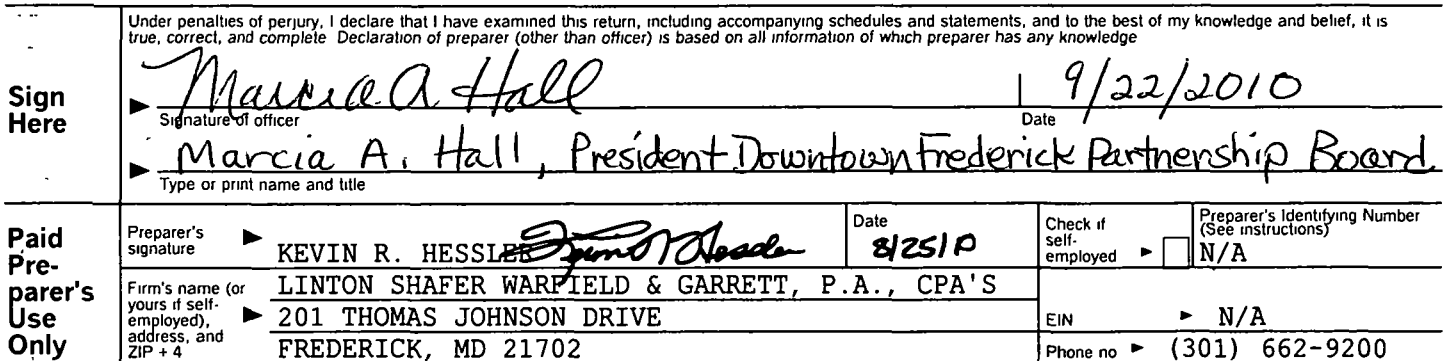 Under penalties of perjury, I declare that I have examined this return, including accompanying schedules and statements, and to the best of my knowledge and belief, it is
true, correct, and complete Declaration of preparer (other than officer) is based on all information of which preparer has any knowledge
Sign
Here
Marcia A. Hall
9/22/2010
Signature of officer
Date
Marcia A. Hall, President Downtown Frederick Partnership Board
Type or print name and title
Paid
Pre-
parer's
Use
Only
Preparer's
signature
KEVIN R. HESSLER
Date
8/25/10
Check if
self-
employed
Preparer's Identifying Number
(See instructions)
N/A
Firm's name (or
yours if self-
employed),
address, and
ZIP + 4
LINTON SHAFER WARFIELD & GARRETT, P.A., CPA'S
201 THOMAS JOHNSON DRIVE
FREDERICK, MD 21702
EIN N/A
Phone no (301) 662-9200